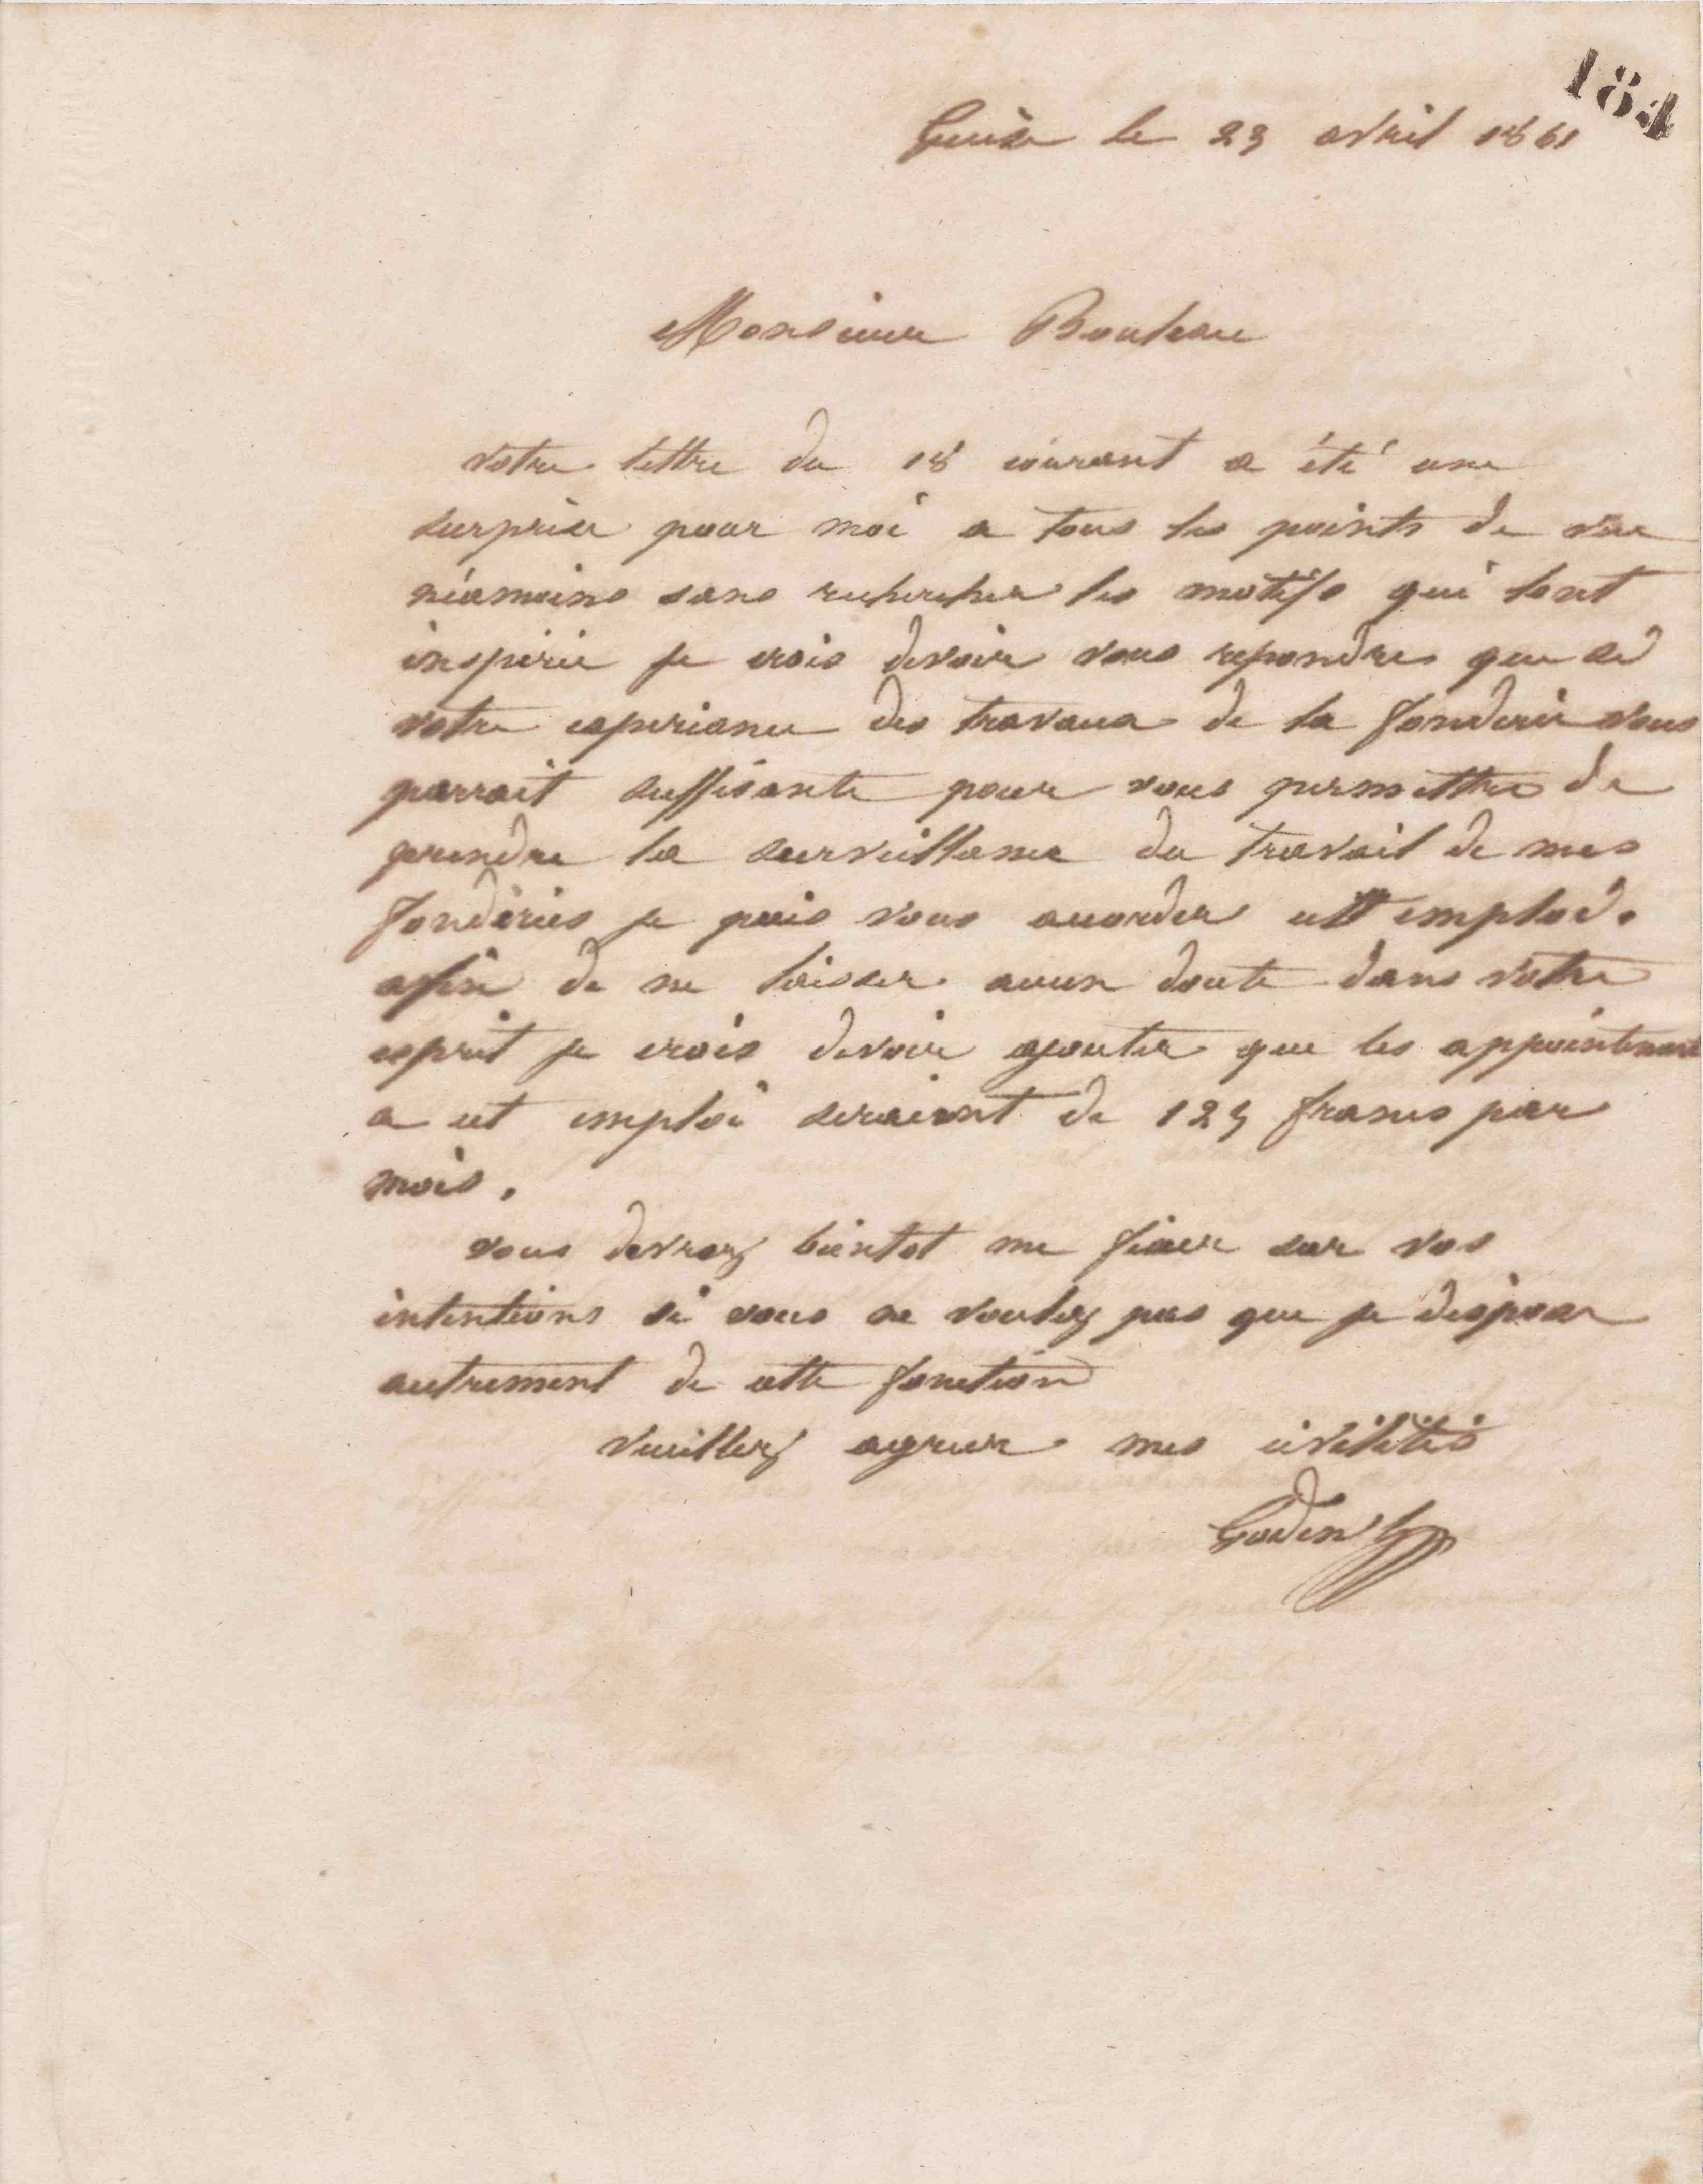 184
Guise le 23 avril 1861
Monsieur Bouleau
votre lettre du 18 courant a été une
surprise pour moi a tous les points de vue
néamoins sans rechercher les motifs qui lont
inspirée je crois devoir vous repondre que si
votre experiance des travaux de la fonderie vous
parrait suffisante pour vous permettre de
prendre la surveillance du travail de mes
fonderies je puis vous accorder cet emploi.
afin de ne laisser aucun doute dans votre
esprit je crois devoir ajouter que les appointements
a cet emploi seraient de 125 francs par
mois.
vous devrez bientot me fixer sur vos
intentions si vous ne voulez pas que je dispose
autrement de cette fonction
Veuillez agreer mes civilités
Godin